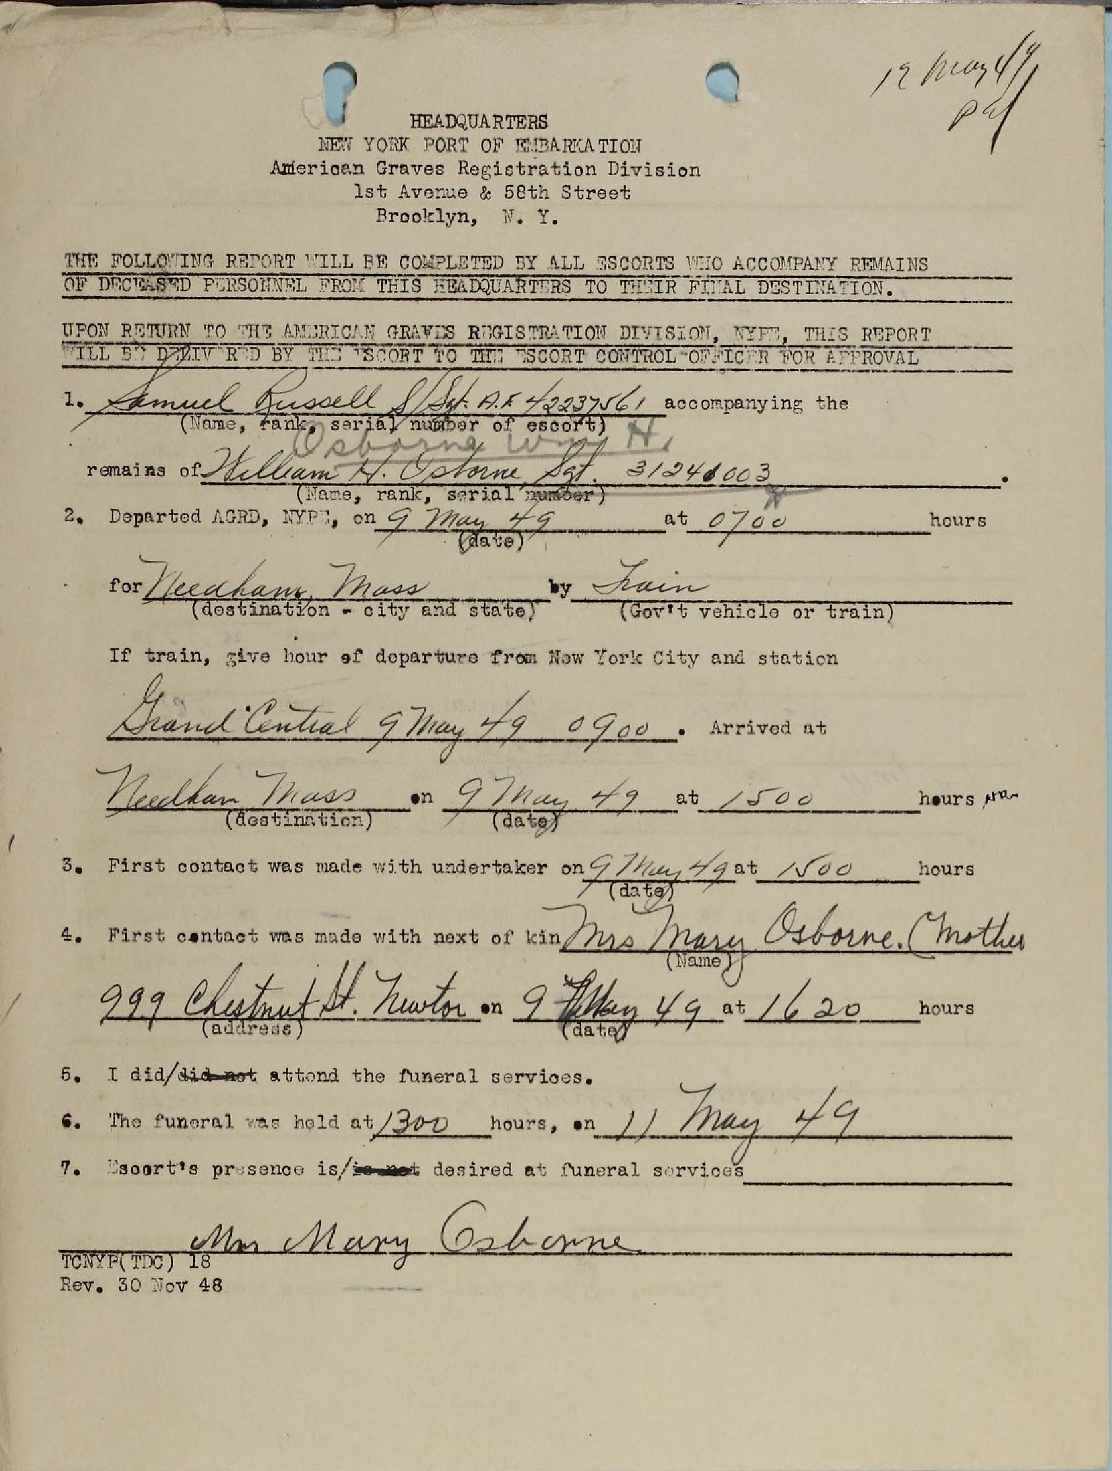 12 May 49
HEADQUARTERS
NEW YORK PORT OF EMBARKATION
American Graves Registration Division
1st Avenue & 58th Street
Brooklyn, N. Y.
THE FOLLOWING REPORT WILL BE COMPLETED BY ALL ESCORTS WHO ACCOMPANY REMAINS
OF DECEASED PERSONNEL FROM THIS HEADQUARTERS TO THEIR FINAL DESTINATION.
UPON RETURN TO THE AMERICAN GRAVES REGISTRATION DIVISION, NYPE, THIS REPORT
WILL BE DELIVERED BY THE ESCORT TO THE ESCORT CONTROL OFFICER FOR APPROVAL
1. Samuel Russell S/Sgt. A.F. 42237561 accompanying the
(Name, rank, serial number of escort)
Osborne Wm H.
remains of William H. Osborne Sgt. 31241003.
(Name, rank, serial number)
2. Departed AGRD, NYPE, on 9 May 49 at 0700 hours
(date)
for Needham, Mass by Train
(destination - city and state) (Gov't vehicle or train)
If train, give hour of departure from New York City and station
Grand Central 9 May 49 0900. Arrived at
Needham Mass on 9 May 49 at 1500 hours
(destination) (date)
3. First contact was made with undertaker on 9 May 49 at 1500 hours
(date)
4. First contact was made with next of kin Mrs Mary Osborne. (Mother
(Name)
999 Chestnut St. Newton on 9 May 49 at 1620 hours
(address) (date)
5. I did/did not attend the funeral services.
6. The funeral was held at 1300 hours, on 11 May 49
7. Escort's presence is/is not desired at funeral services
Mrs Mary Osborne
TCNYP(TDC) 18
Rev. 30 Nov 48